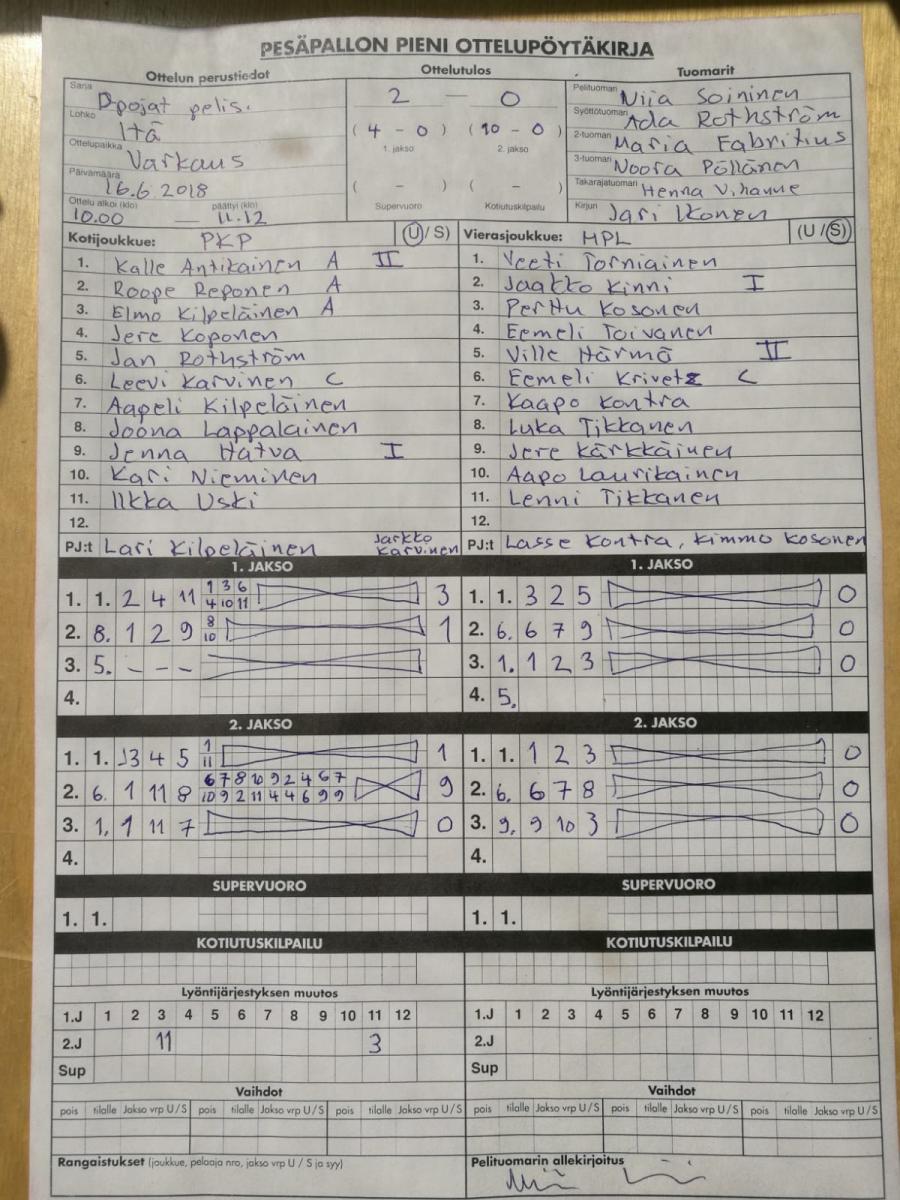 PESÄPALLON PIENI OTTELUPÖYTÄKIRJA
Ottelun perustiedot Ottelutulos Tuomarit
Sarja D-pojat pelis.
Lohko Itä
Ottelupaikka Varkaus
Päivämäärä 16.6.2018
Ottelu alkoi (klo) päättyi (klo)
10.00 — 11.12
2 — 0
(4 - 0) (10 - 0)
1. jakso 2. jakso
( - ) ( - )
Supervuoro Kotiutuskilpailu
Pelituomari Niia Soininen
Syöttötuomari Ada Rothström
2-tuomari Maria Fabritius
3-tuomari Noora Pöllänen
Takarajatuomari Henna Vihanne
Kirjuri Jari Ikonen
Kotijoukkue: PKP (U/S)
1. Kalle Antikainen A II
2. Roope Reponen A
3. Elmo Kilpeläinen A
4. Jere Koponen
5. Jan Rothström
6. Leevi Karvinen C
7. Aapeli Kilpeläinen
8. Joona Lappalainen
9. Jenna Hatva I
10. Kari Nieminen
11. Ilkka Uski
12.
PJ:t Lari Kilpeläinen Jarkko Karvinen
Vierasjoukkue: MPL (U/S)
1. Veeti Torniainen
2. Jaakko Kinni I
3. Perttu Kosonen
4. Eemeli Toivanen
5. Ville Härmä II
6. Eemeli Krivetz C
7. Kaapo Kontra
8. Luka Tikkanen
9. Jere Kärkkäinen
10. Aapo Laurikainen
11. Lenni Tikkanen
12.
PJ:t Lasse Kontra, Kimmo Kosonen
1. JAKSO
1. 1. 2 4 11 1 3 6 3
4 10 11
2. 8. 1 2 9 8 1
10
3. 5. - - -
4.
1. JAKSO
1. 1. 3 2 5 0
2. 6. 6 7 9 0
3. 1. 1 2 3 0
4. 5.
2. JAKSO
1. 1. 3 4 5 1 1
11
2. 6. 1 11 8 6 7 8 10 9 2 4 6 7 9
10 9 2 11 4 4 6 9 9
3. 1. 1 11 7 0
4.
2. JAKSO
1. 1. 1 2 3 0
2. 6. 6 7 8 0
3. 9. 9 10 3 0
4.
SUPERVUORO SUPERVUORO
1. 1. 1. 1.
KOTIUTUSKILPAILU KOTIUTUSKILPAILU
Lyöntijärjestyksen muutos Lyöntijärjestyksen muutos
1.J 1 2 3 4 5 6 7 8 9 10 11 12 1.J 1 2 3 4 5 6 7 8 9 10 11 12
2.J 11 3 2.J
Sup Sup
Vaihdot Vaihdot
pois tilalle Jakso vrp U/S pois tilalle Jakso vrp U/S pois tilalle Jakso vrp U/S pois tilalle Jakso vrp U/S pois tilalle Jakso vrp U/S pois tilalle Jakso vrp U/S
Rangaistukset (joukkue, pelaaja nro, jakso vrp U / S ja syy) Pelituomarin allekirjoitus